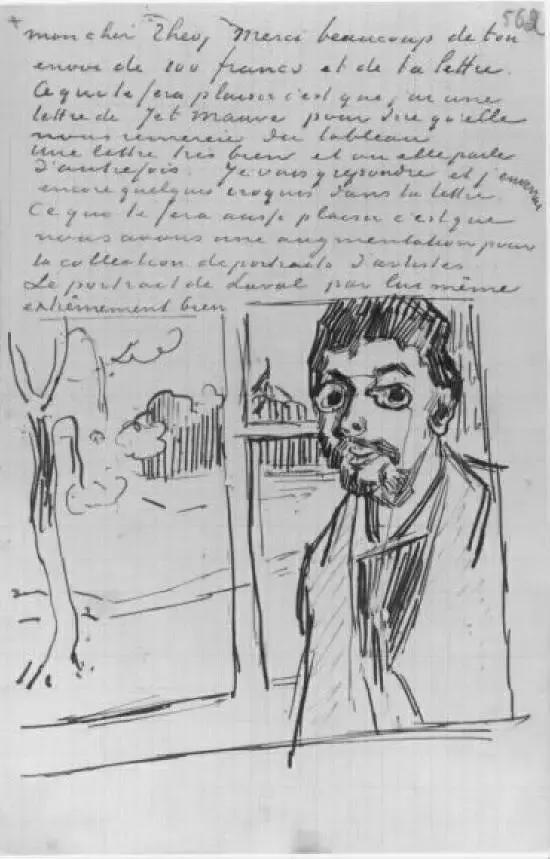 562
mon cher Theo, Merci beaucoup de ton
envoi de 100 francs et de ta lettre.
Ce qui te fera plaisir c'est que j'ai une
lettre de Jet Mauve pour dire qu'elle
nous remercie du tableau
une lettre très bien et où elle parle
d'autrefois. Je vais y répondre et j'enverrai
encore quelques croquis dans la lettre.
Ce qui te fera aussi plaisir c'est que
nous avons une augmentation pour
la collection de portraits d'artistes
Le portrait de Laval par lui même
extrêmement bien